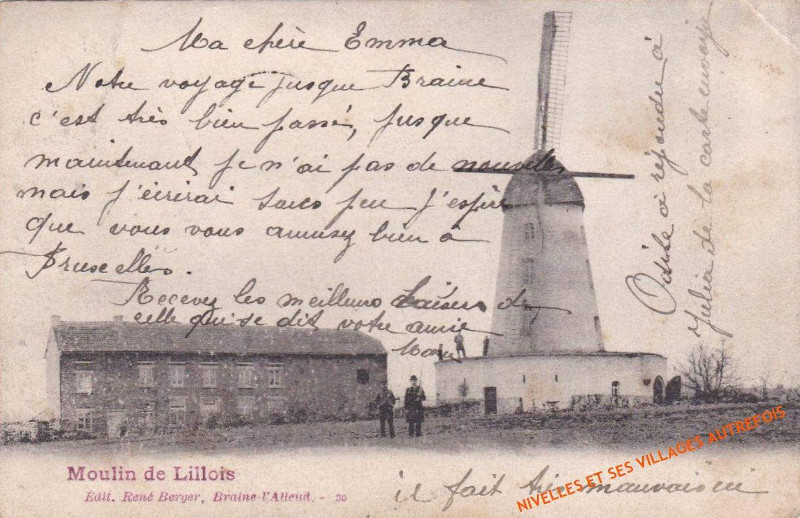 Ma chère Emma
Notre voyage jusque Braine
c'est très bien passé, jusque
maintenant je n'ai pas de nouvelles
mais j'écrirai sous peu j'espère
que vous vous amusez bien à
Bruxelles.
Recevez les meilleurs baisers de
celle qui se dit votre amie
Odile a répondu à
Julia de la carte envoyé
Moulin de Lillois
Édit. René Berger, Braine-l'Alleud. - 20
il fait très mauvais ici
NIVELLES ET SES VILLAGES AUTREFOIS